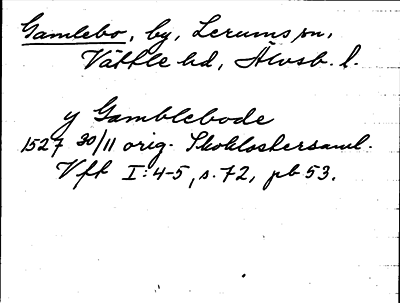 Gamlebo, by, Lerums sn,
Vättle hd, Älvsb. l.
y Gamblebode
1527 30/11 orig. Skoklostersaml.
Vfh I:4-5, s. 72, pb 53.